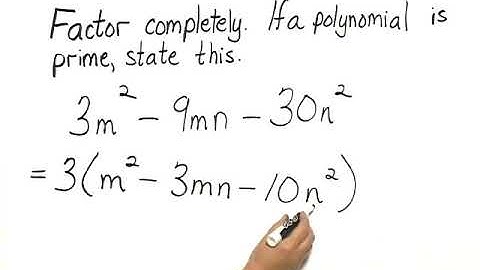 Factor completely. If a polynomial is
prime, state this.
3m² - 9mn - 30n²
= 3(m² - 3mn - 10n²)